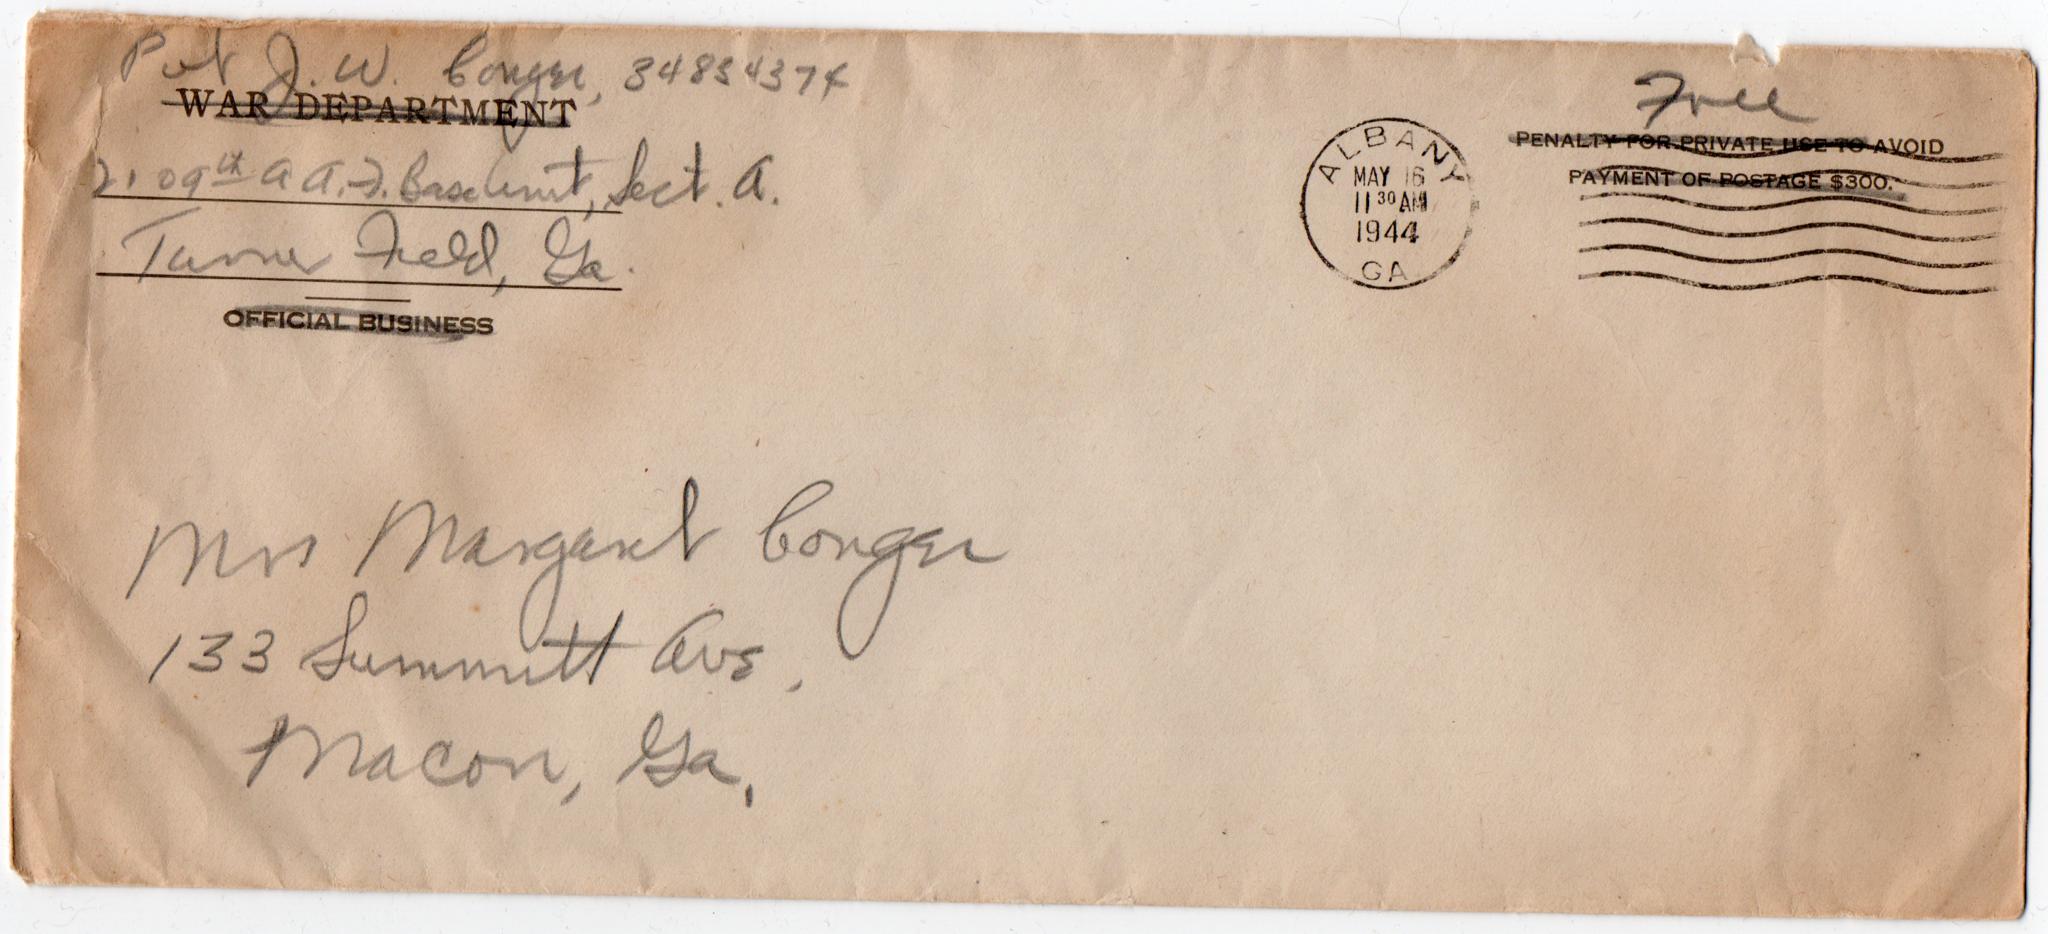 Pvt J. W. Conger, 34834374
WAR DEPARTMENT
2109th A.A.F. Base Unit, Sect. A.
Turner Field, Ga.
OFFICIAL BUSINESS
ALBANY
MAY 16
11 30 AM
1944
GA
Free
PENALTY FOR PRIVATE USE TO AVOID
PAYMENT OF POSTAGE $300.
Mrs Margaret Conger
133 Summitt Ave.
Macon, Ga.